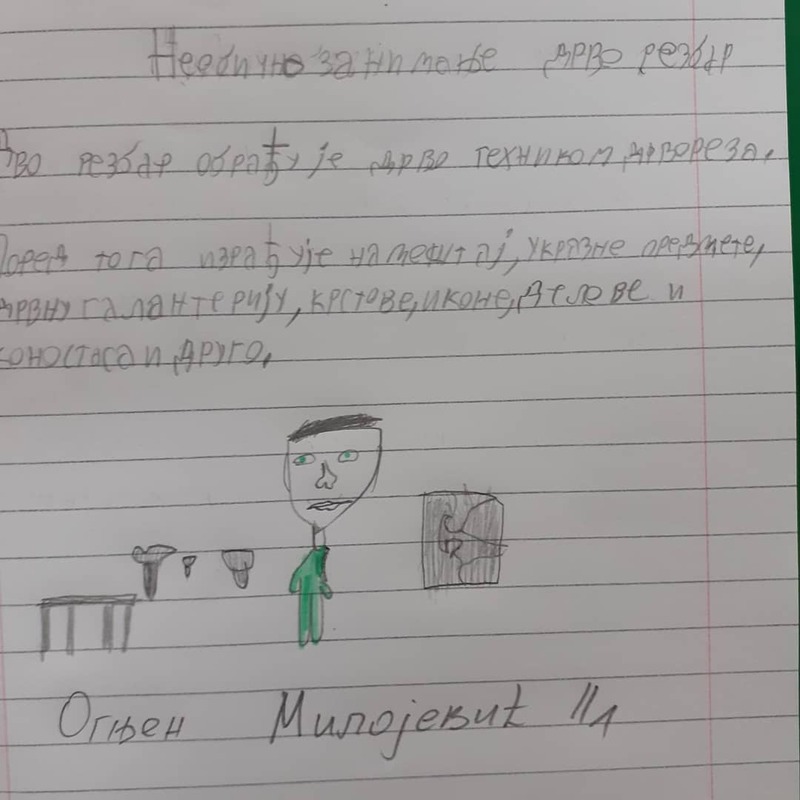 Необично занимање дрво резбар
Дво резбар обрађује дрво техником двореза.
Поред тога израђује намештај, укразне предмете,
дрвну галантерију, крстове, иконе, делове и
коностаса и друго.
Огњен Милојевић II1